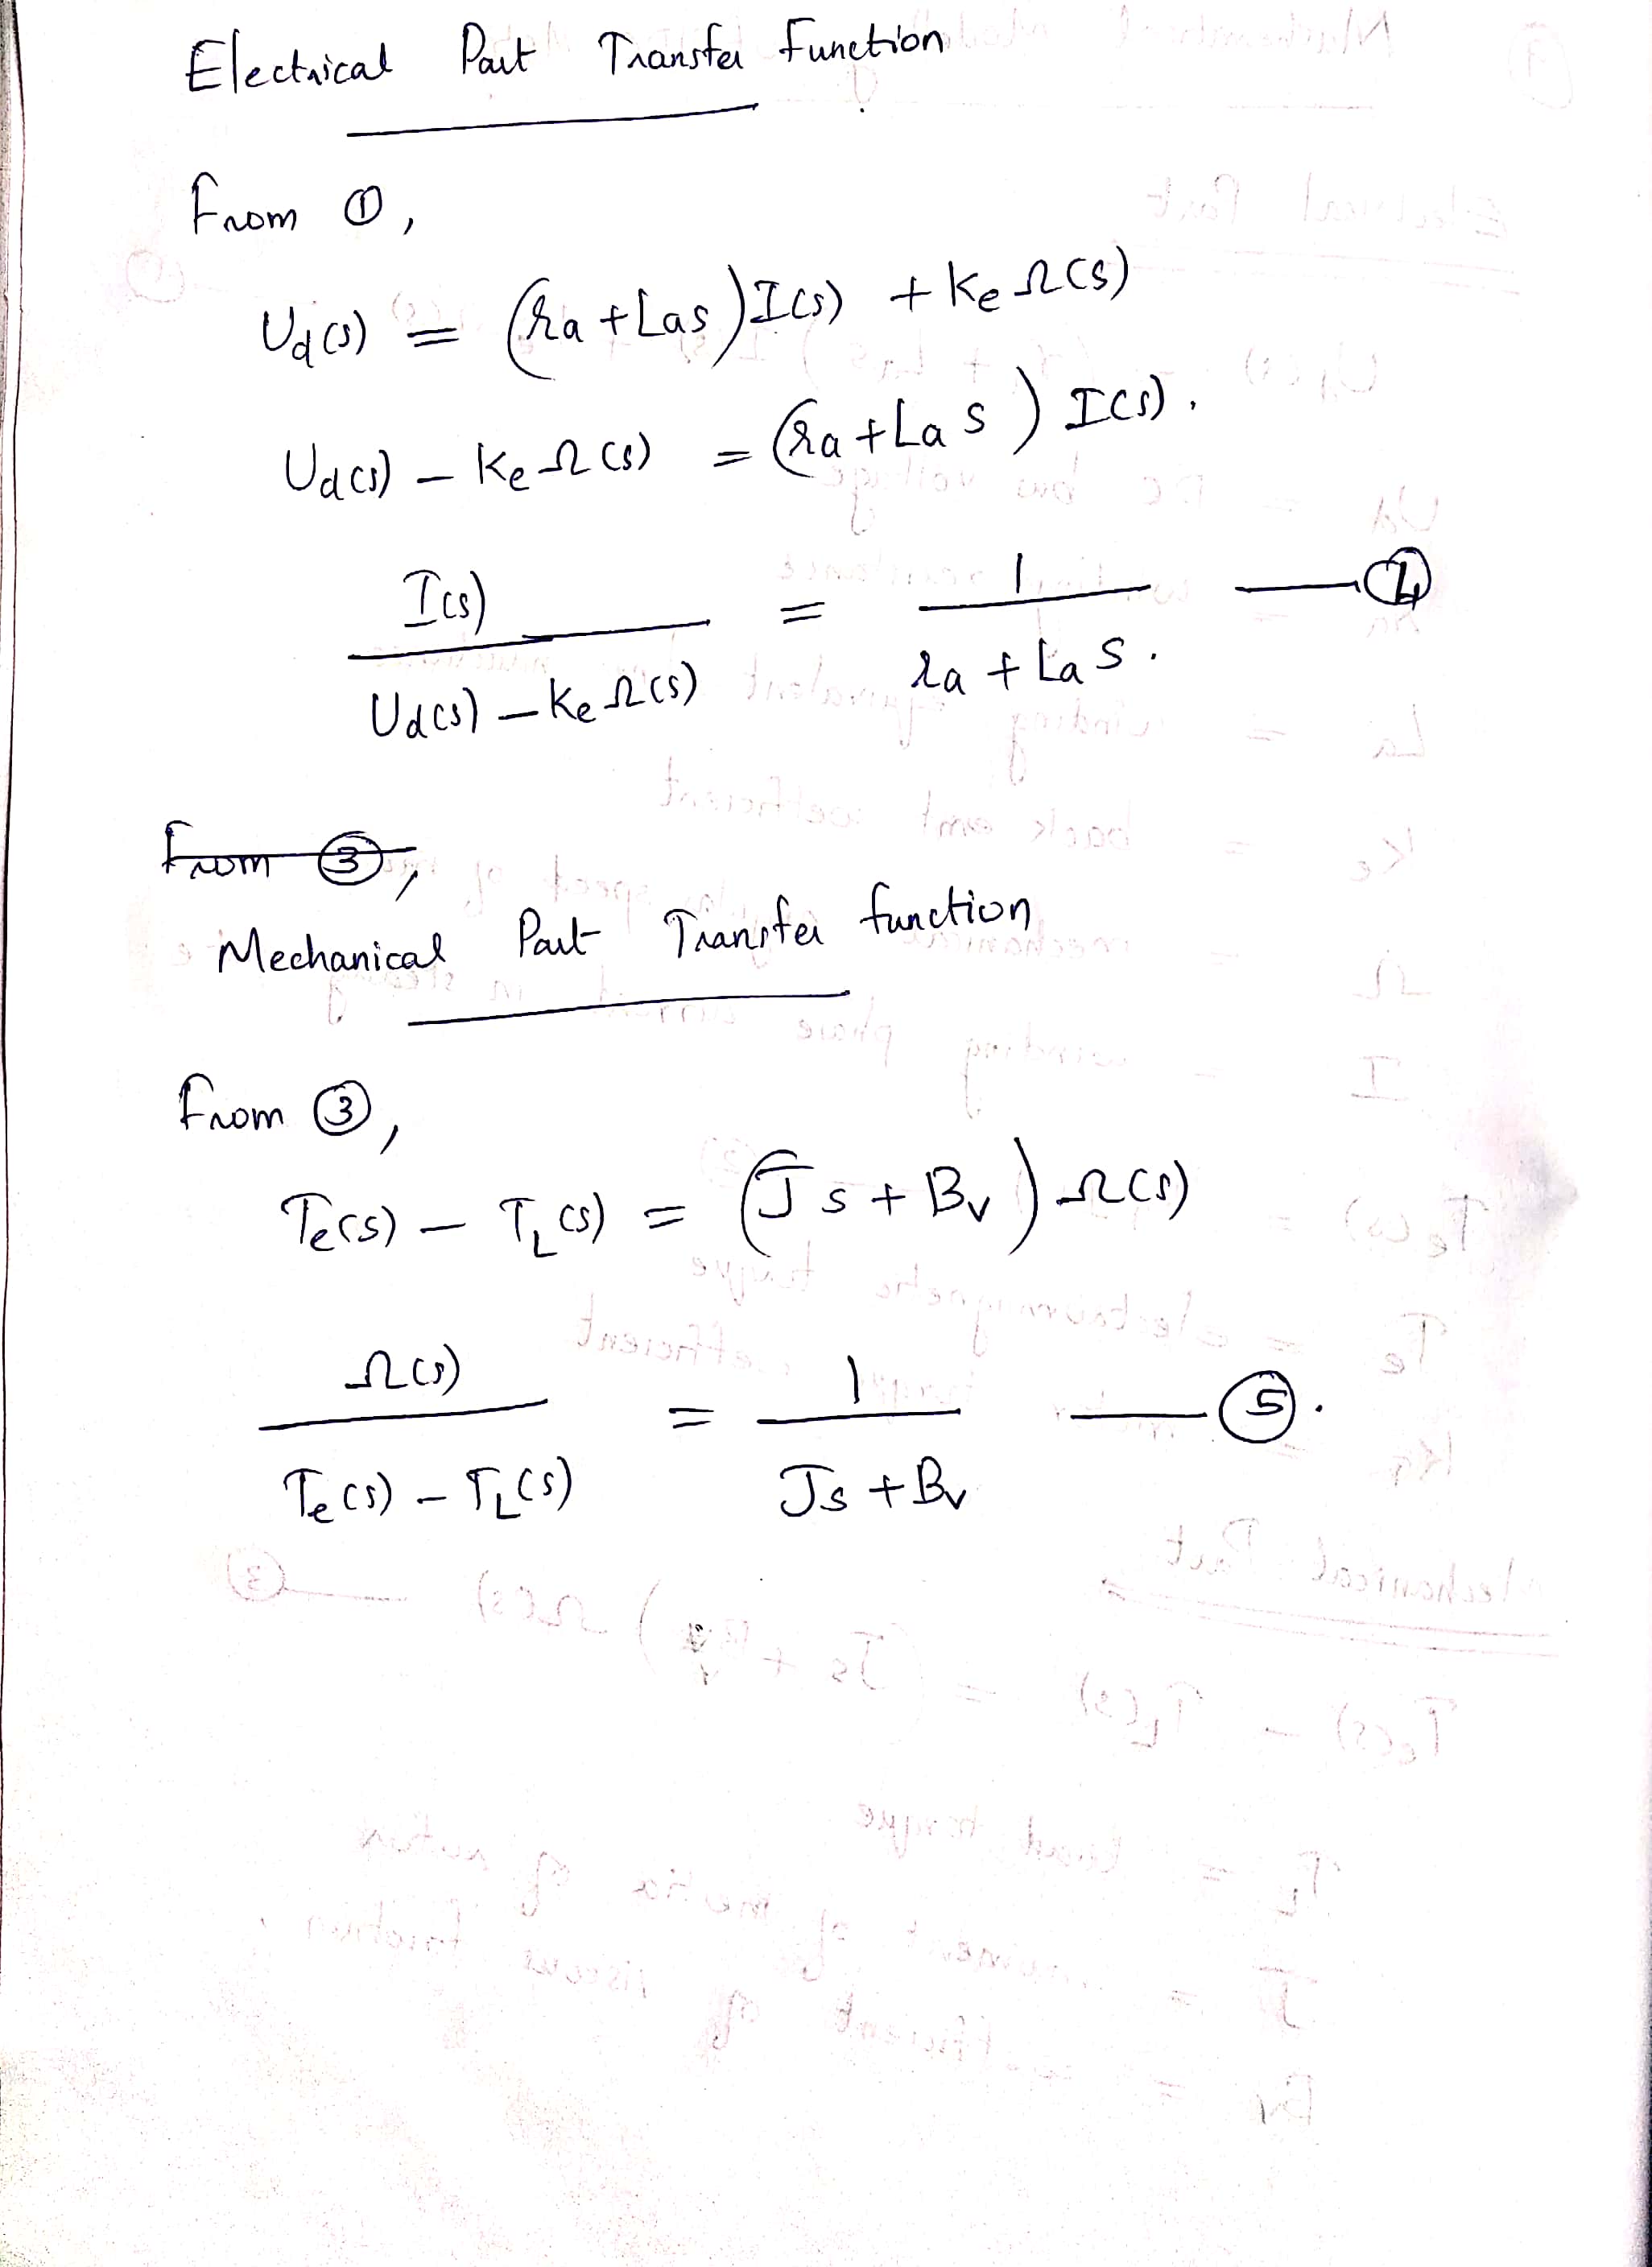 Electrical Part Transfer Function
From ①,
Ud(s) = (ra + Las) I(s) + Ke Ω(s)
Ud(s) – Ke Ω(s) = (ra + La s) I(s).
I(s) / (Ud(s) – Ke Ω(s)) = 1 / (ra + La s). —④
From ③,
Mechanical Part Transfer function
From ③,
Te(s) – TL(s) = (Js + Bv) Ω(s)
Ω(s) / (Te(s) – TL(s)) = 1 / (Js + Bv) —⑤.